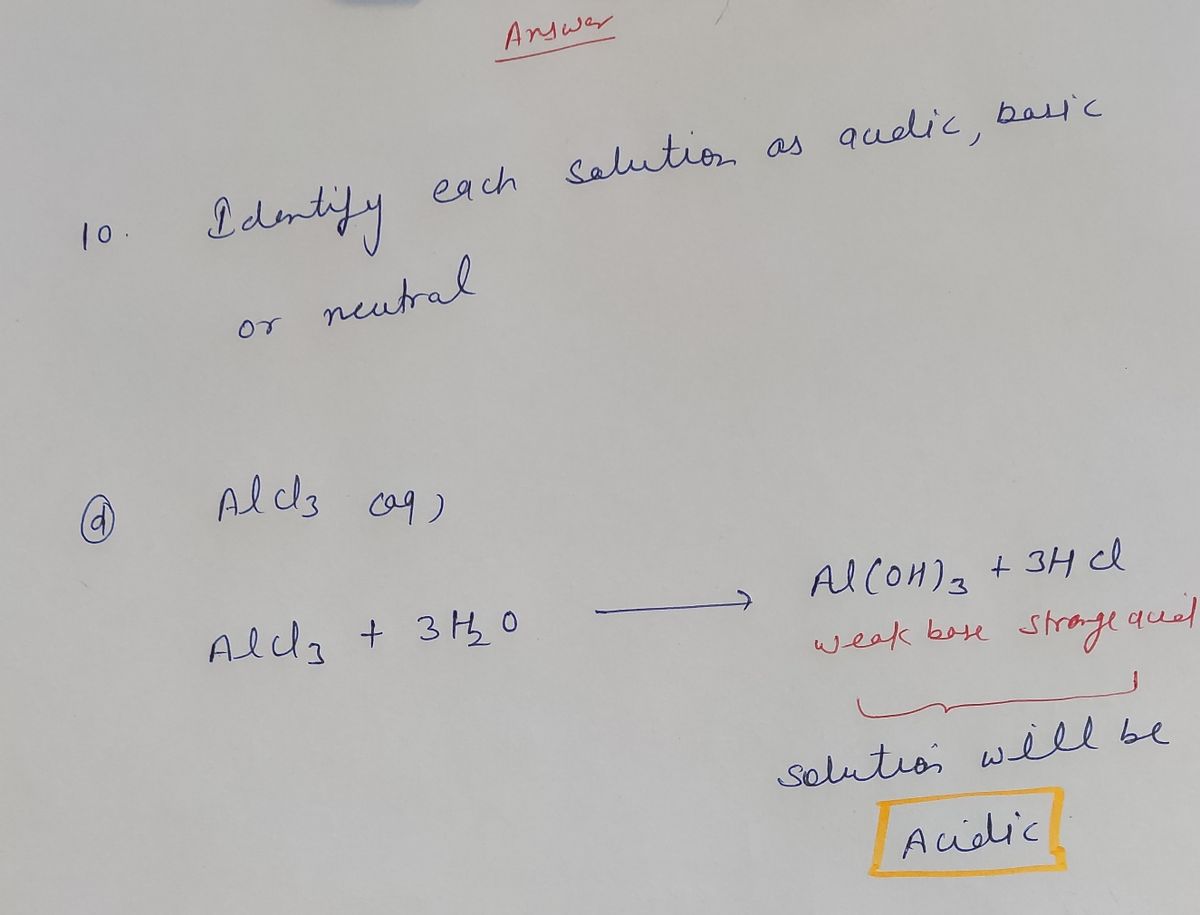 Answer
10. Identify each solution as acidic, basic
or neutral
(d) AlCl3 (aq)
AlCl3 + 3H2O ⟶ Al(OH)3 + 3HCl
weak base stronge acid
solution will be
Acidic